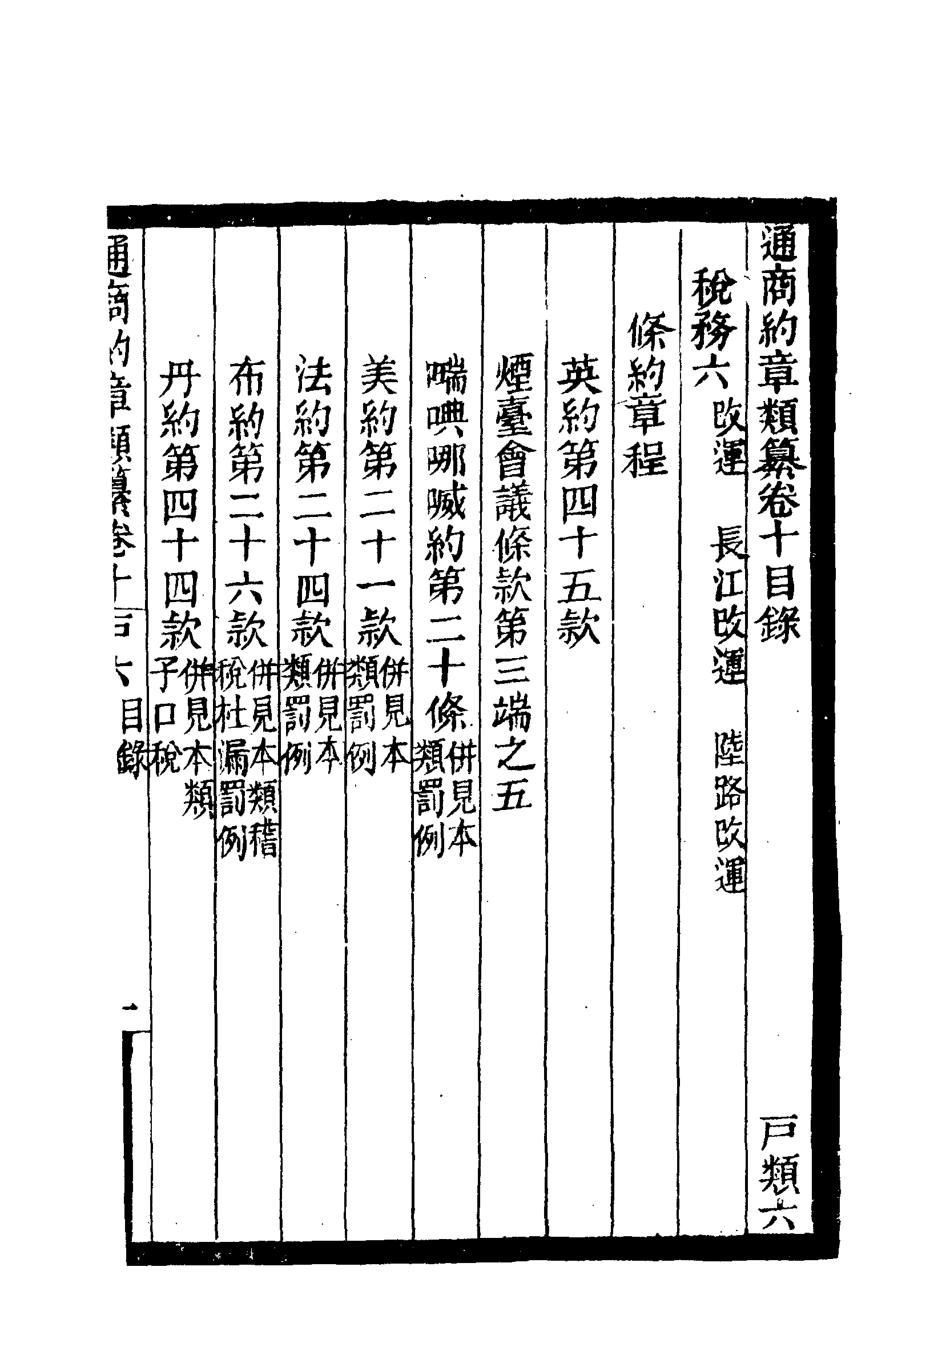 通商約章類纂卷十目錄　戶類六
稅務六　改運　長江改運　陸路改運
條約章程
英約第四十五款
煙臺會議條款第三端之五
㗂㖭㖠㖪約第二十條併見本類罰例
美約第二十一款併見本類罰例
法約第二十四款併見本類罰例
布約第二十六款併見本類稽稅杜漏罰例
丹約第四十四款併見本類子口稅
通商約章類纂卷十　戶六　目錄　一